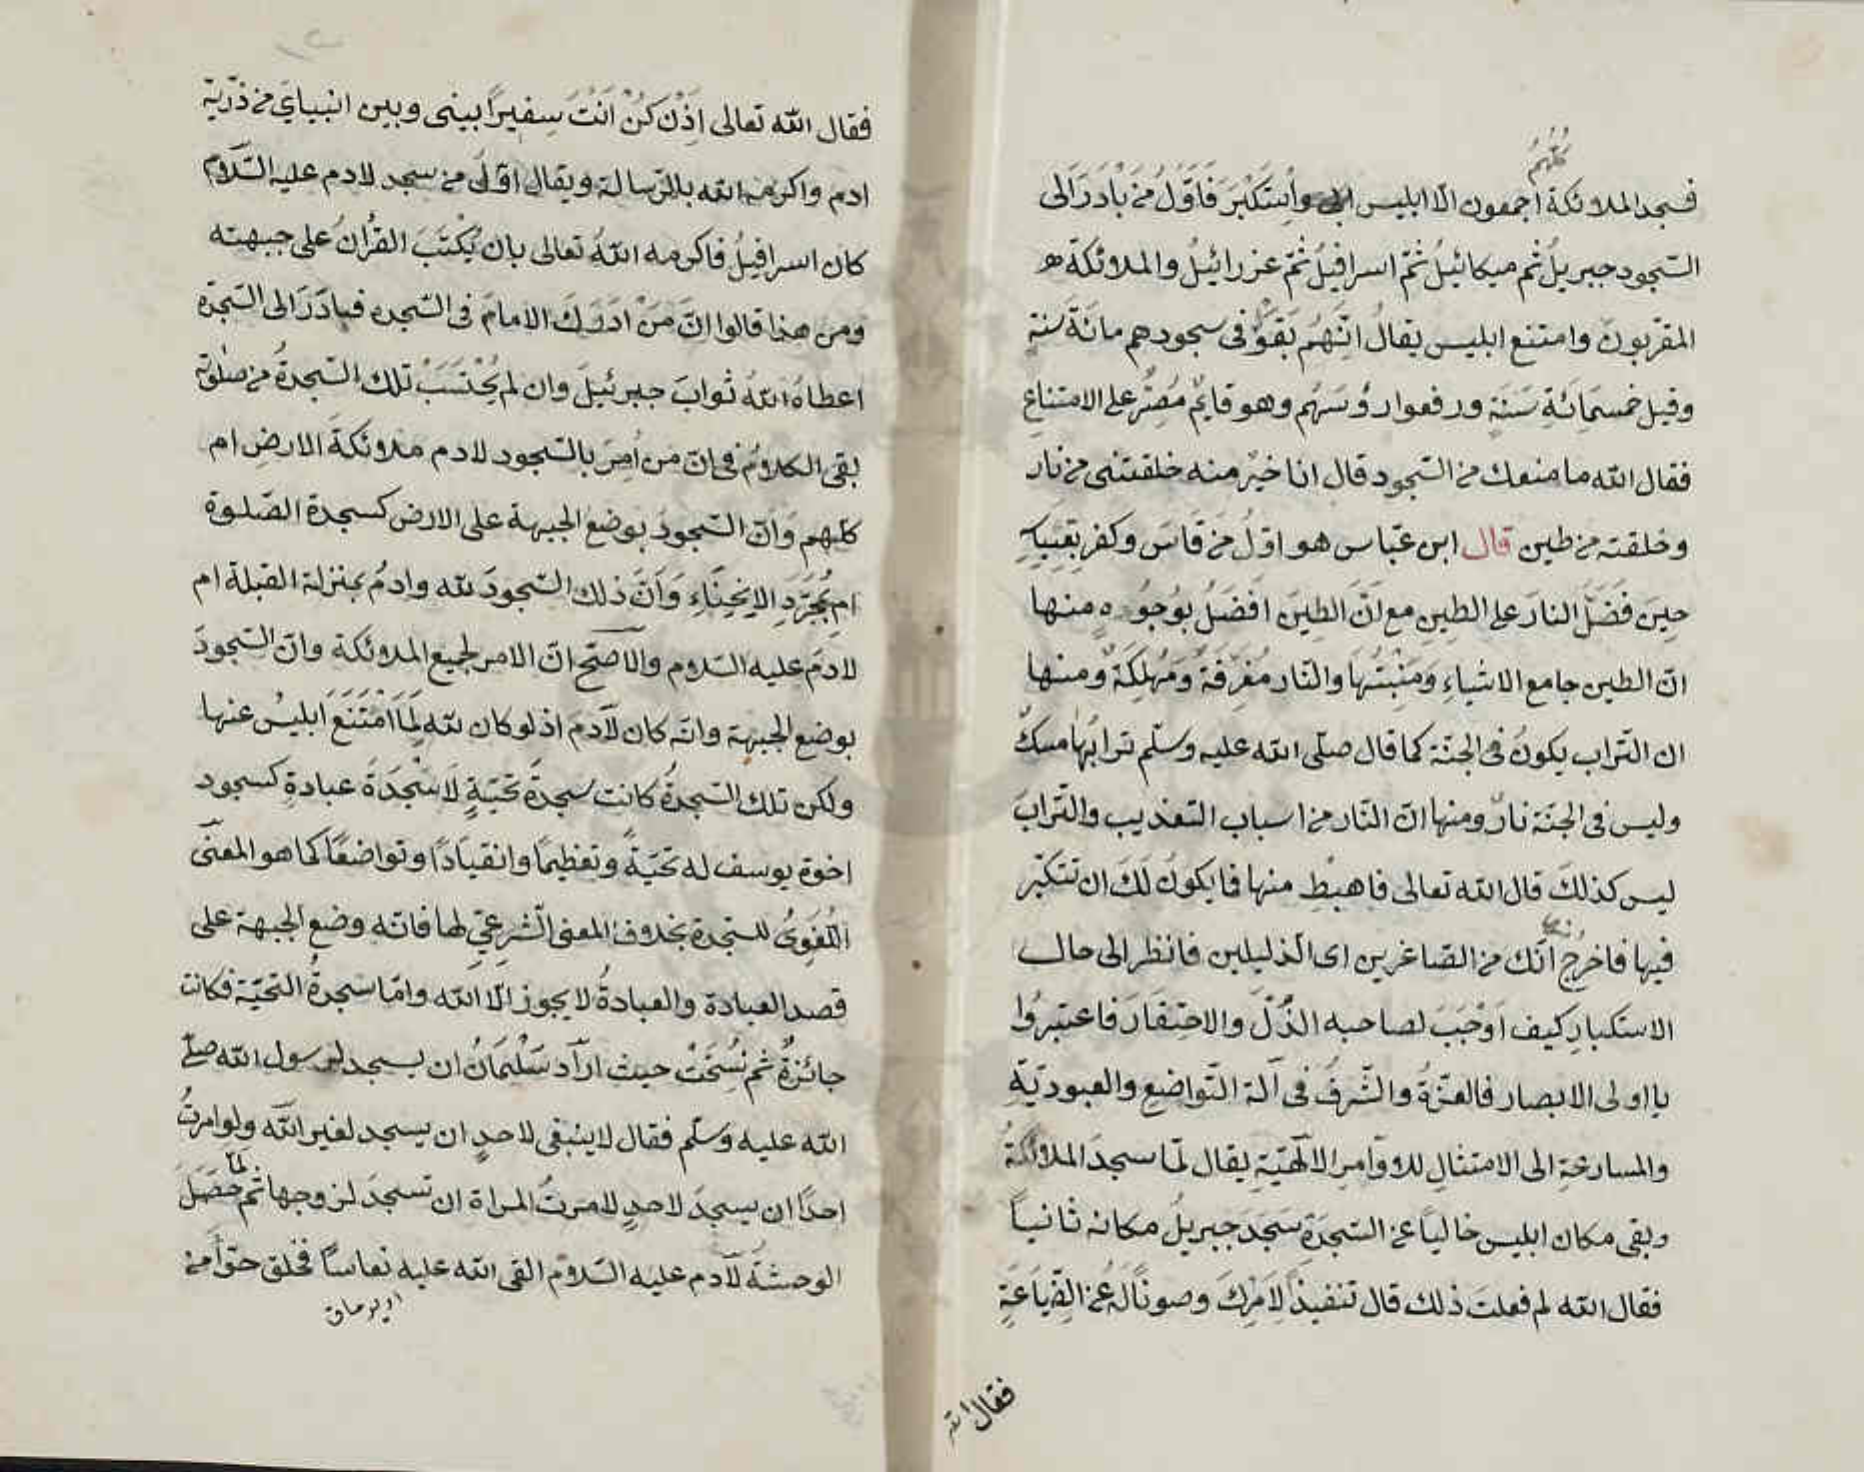 كلهم
فسجد الملائكة اجمعون الا ابليس ابى واستكبر فَاَوَّلُ مَن بَادَرَ الى
السّجود جبريلُ ثم ميكائيلُ ثمّ اسرافيلُ ثمّ عزرائيلُ والملائكة هو
المقرّبون وامتنع ابليس يقالُ انّهُم بَقَوْ فى سجودهم مائَةَ سَنةٍ
وقيل خمسَمِائَةِ سَنَةٍ ورفعوا رؤسَهُم وهو قايمٌ مُصِرٌّ على الامتناعِ
فقال الله ما منعك من السّجود قال انا خيْر منه خلقتنى من نار
وخلقته من طين قال ابن عبّاس هو اوّلُ من قَاسَ وكفر بقِيَاسِه
حِينَ فَضَّلَ النارَ على الطينِ مع اَنَّ الطينَ افضلُ بوُجُوهٍ منها
انّ الطين جامع الاشياءِ ومَنْبَتُهَا والنّار مُفَرِّقَةٌ ومُهلِكَةٌ ومنها
ان التّراب يكونُ فى الجنّة كما قال صلّى الله عليه وسلّم ترابُها مسكٌ
وليس فى الجنّة نارٌ ومنها انّ النّار من اسباب التّعذيب والتّرابَ
ليس كذلكَ قال الله تعالى فاهبِطْ منها فما يكونُ لَكَ ان تتكبّر
فيها فاخرُج انّك من الصّاغرين اى الذّليلين فانظر الى حال
الاستكبارِ كيف اَوْجَبَ لصاحبه الذُّلَّ والاحتِقَارَ فاعتبِرُوا
يا اولى الابصار فالعزّةُ والشّرفُ فى آلة التّواضعِ والعبوديّةِ
والمسارعةِ الى الامتثالِ للاوَامرِ الالٰهيّةِ يقال لمّا سجدَ الملائكةُ
وبقى مكان ابليس خالياً عن السّجدَةِ سَجَدَ جبريلُ مكانه ثانياً
فقال الله لم فعلتَ ذلك قال تنفيذاً لاَمْرِكَ وصوناً لَهُ عن الضّيَاعَةِ
فقال الله
فقال الله تعالى اِذَنْ كُنْ اَنْتَ سفيرًا بينى وبين انبيايَ من ذرّية
ادم واكرمه الله بالرّسالة ويقال اوّلُ من سجد لادم عليه السّلام
كان اسرافيلُ فاكرمه اللهُ تعالى بان يُكْتَبَ القُرْانُ على جبهته
ومن هذا قالوا انّ مَنْ ادركَ الامامَ فى السّجده فبادَرَ الى السّجدَة
اعطاهُ اللهُ ثوابَ جبرئيلَ وان لم يُحْتَسَبْ تلك السّجدةُ من صلوٰته
بقى الكلامُ فى انّ من اُمِرَ بالسّجود لادم ملائكةَ الارضِ ام
كلّهم وَانّ السّجودَ بوضع الجبهة على الارض كسجدة الصّلوة
ام بمُجَرَّدِ الاِنحِنَاءِ وَانَّ ذلك السّجودَ لله وادمُ بمنزلة القبلة ام
لادمَ عليه السّلام والاَصَحّ انّ الامر لجميع الملائكة وانّ السّجودَ
بوضع الجبهة وانّه كان لآدم اذ لو كان لله لَمَا امْتَنَعَ ابليسُ عنها
ولكن تلك السّجدةُ كانت سجدةَ تحيّةٍ لَا سَجْدَةَ عبادةٍ كسجود
اخوة يوسف له تحيّةً وتعظيمًا وانقيادًا وتواضعًا كما هو المعنَى
اللُّغَوِىُّ للسّجدة بخلاف المعنى الشّرعىّ لها فانّه وضع الجبهة على
قصد العبادة والعبادةُ لا يجوز الّا الله وامّا سجدةُ التّحيّة فكانت
جائزةً ثم نُسِخَتْ حيث ارَادَ سَلْمَانُ ان يسجد لرسول الله صلّى
الله عليه وسلّم فقال لا ينبغى لاحدٍ ان يسجد لغير الله ولو امرتُ
احدًا ان يسجدَ لاحدٍ لامرتُ المراة ان تسجدَ لزوجها ثم لمّا حَصَلَ
الوحشةُ لآدم عليه السّلام القى الله عليه نعاساً فخلق حوّاَ من